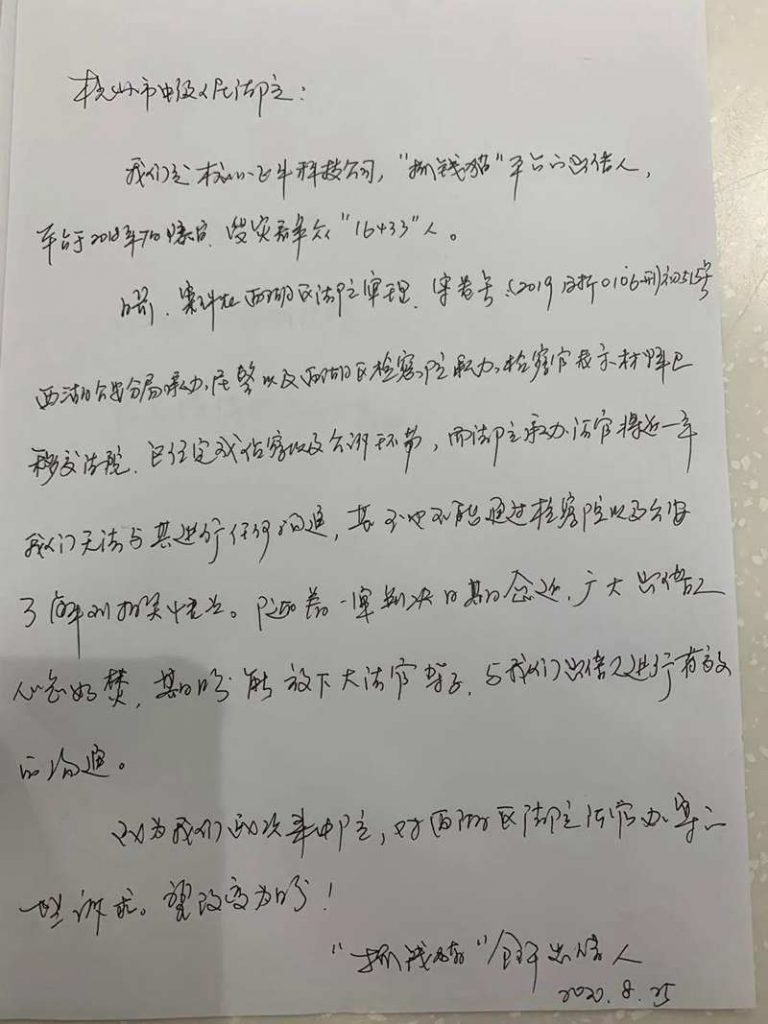 杭州市中级人民法院：
我们是杭州小飞牛科技公司，“抓钱猫”平台的出借人，
平台于2018年7月爆雷，受灾群众“16433”人。
目前，案件在西湖区法院审理，案号（2019）浙0106刑初515号
西湖公安分局承办民警以及西湖区检察院承办检察官表示材料已
移交法院，已经完成侦察以及公诉环节，而法院承办法官将近一年
我们无法与其进行任何沟通，甚至也不能通过检察院以及公安
了解到相关信息。随着一审判决日期的临近，广大出借人
心急如焚，期盼能放下大法官架子，与我们出借人进行有效
的沟通。
此为我们西次来中院，对西湖区法院法官办案的
一些诉求。望改变为盼！
“抓钱猫”全体出借人
2020.8.25